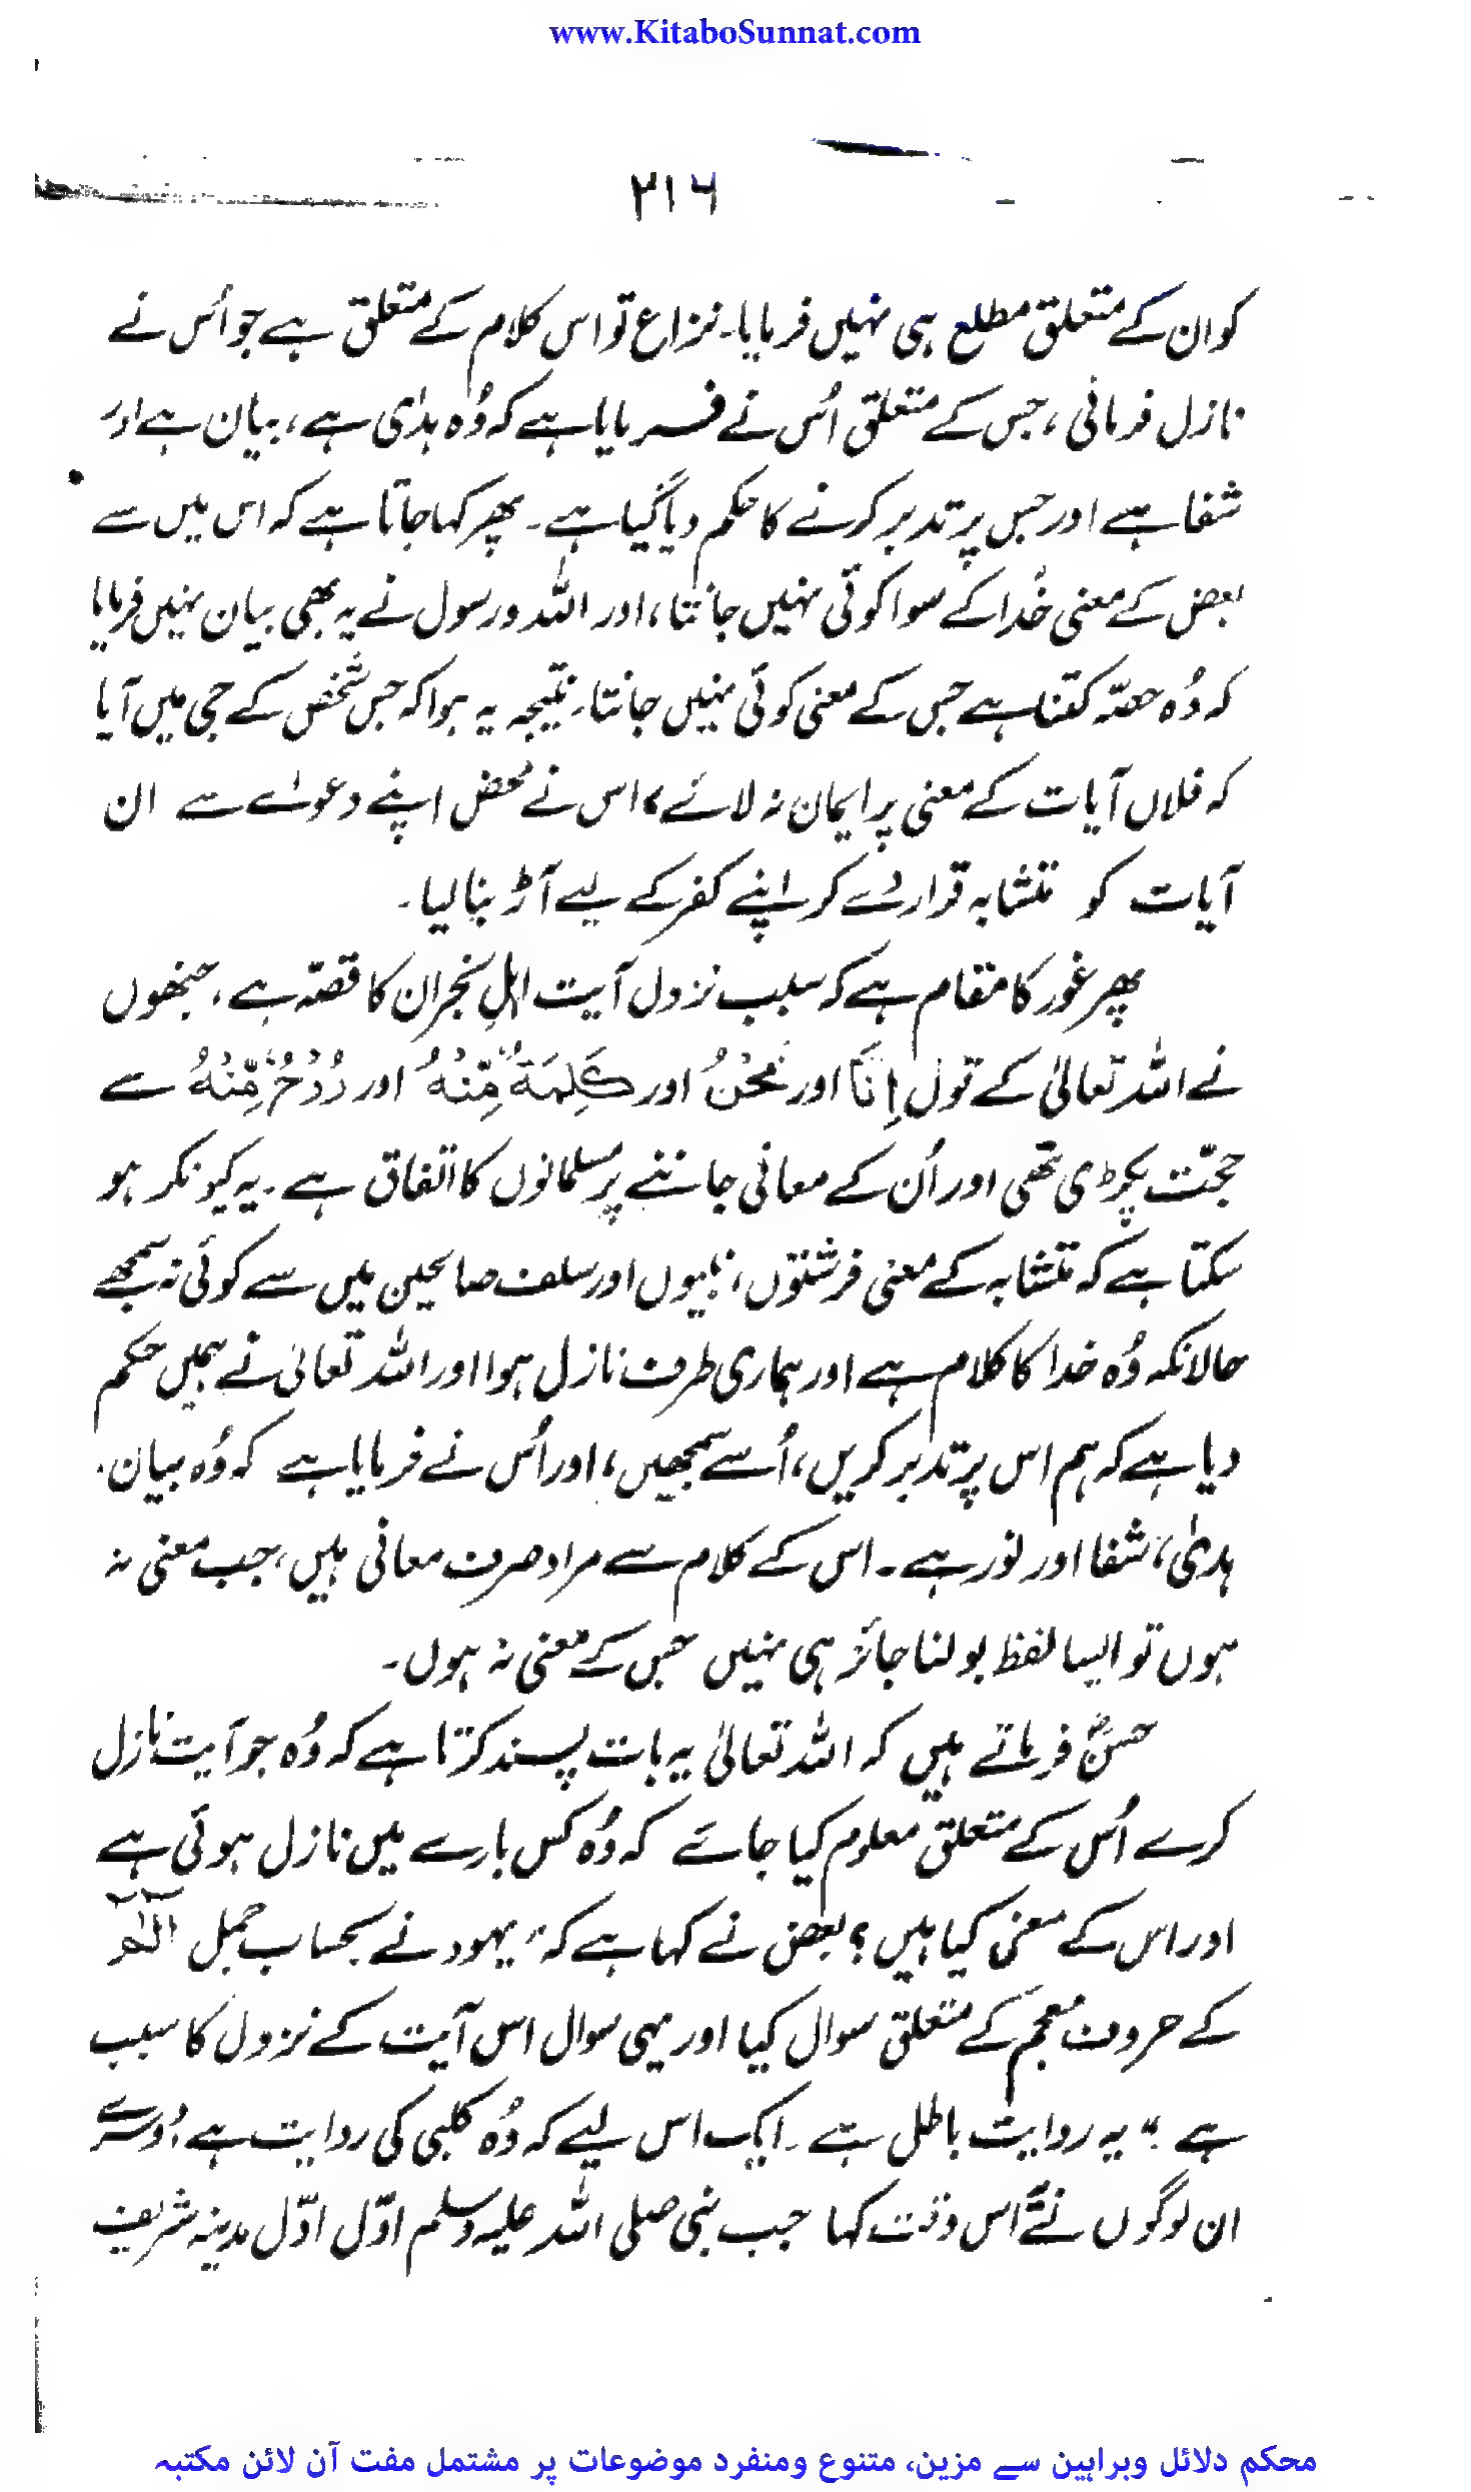 www.KitaboSunnat.com
۲۱۶
کو ان کے متعلق مطلع ہی نہیں فرمایا۔ نزاع تو اس کلام کے متعلق ہے جو اُس نے
نازل فرمائی، جس کے متعلق اُس نے فرمایا ہے کہ وُہ ہدٰی ہے، بیان ہے اور
شفا ہے اور جس پر تدبر کرنے کا حکم دیا گیا ہے۔ پھر کہا جاتا ہے کہ اس میں سے
بعض کے معنی خُدا کے سوا کوئی نہیں جانتا، اور اللہ ورسول نے یہ بھی بیان نہیں فرمایا
کہ وُہ حصّہ کتنا ہے جس کے معنی کوئی نہیں جانتا۔ نتیجہ یہ ہوا کہ جس شخص کے جی میں آیا
کہ فلاں آیات کے معنی پر ایمان نہ لائے، اس نے محض اپنے دعوٰے سے ان
آیات کو متشابہ قرار دے کر اپنے کفر کے لیے آڑ بنا لیا۔
پھر غور کا مقام ہے کہ سبب نزول آیت اہلِ نجران کا قصّہ ہے، جنھوں
نے اللہ تعالیٰ کے قول إِنَّا اور نَحْنُ اور كَلِمَةٌ مِّنْهُ اور رُوْحٌ مِّنْهُ سے
حجّت پکڑی تھی اور اُن کے معانی جاننے پر مسلمانوں کا اتفاق ہے۔ یہ کیونکر ہو
سکتا ہے کہ متشابہ کے معنی فرشتوں، نبیوں اور سلف صالحین میں سے کوئی نہ سمجھے
حالانکہ وُہ خدا کا کلام ہے اور ہماری طرف نازل ہوا اور اللہ تعالیٰ نے ہمیں حکم
دیا ہے کہ ہم اس پر تدبر کریں، اُسے سمجھیں، اور اُس نے فرمایا ہے کہ وُہ بیان،
ہدیٰ، شفا اور نور ہے۔ اس کے کلام سے مراد صرف معانی ہیں، جب معنی نہ
ہوں تو ایسا لفظ بولنا جائز ہی نہیں جس کے معنی نہ ہوں۔
حسنؓ فرماتے ہیں کہ اللہ تعالیٰ یہ بات پسند کرتا ہے کہ وُہ جو آیت نازل
کرے اُس کے متعلق معلوم کیا جائے کہ وُہ کس بارے میں نازل ہوئی ہے
اور اس کے معنی کیا ہیں؟ بعض نے کہا ہے کہ "یہود نے بحساب جمل الٓمٓ
کے حروف معجم کے متعلق سوال کیا اور یہی سوال اس آیت کے نزول کا سبب
ہے" یہ روایت باطل ہے۔ ایک اس لیے کہ وُہ کلبی کی روایت ہے، دُوسرے
ان لوگوں نے اس وقت کہا جب نبی صلی اللہ علیہ وسلم اوّل اوّل مدینہ شریف
محکم دلائل وبراہین سے مزین، متنوع ومنفرد موضوعات پر مشتمل مفت آن لائن مکتبہ